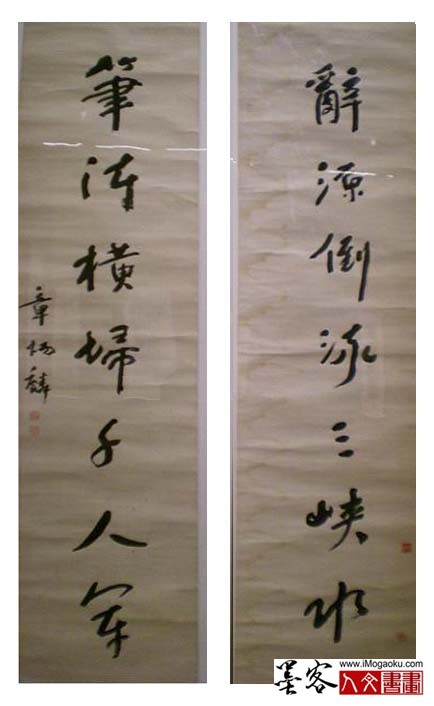 辭源倒流三峽水
筆陣橫埽千人軍
章炳麟
墨客
www.iMogaoku.com
人文書畫